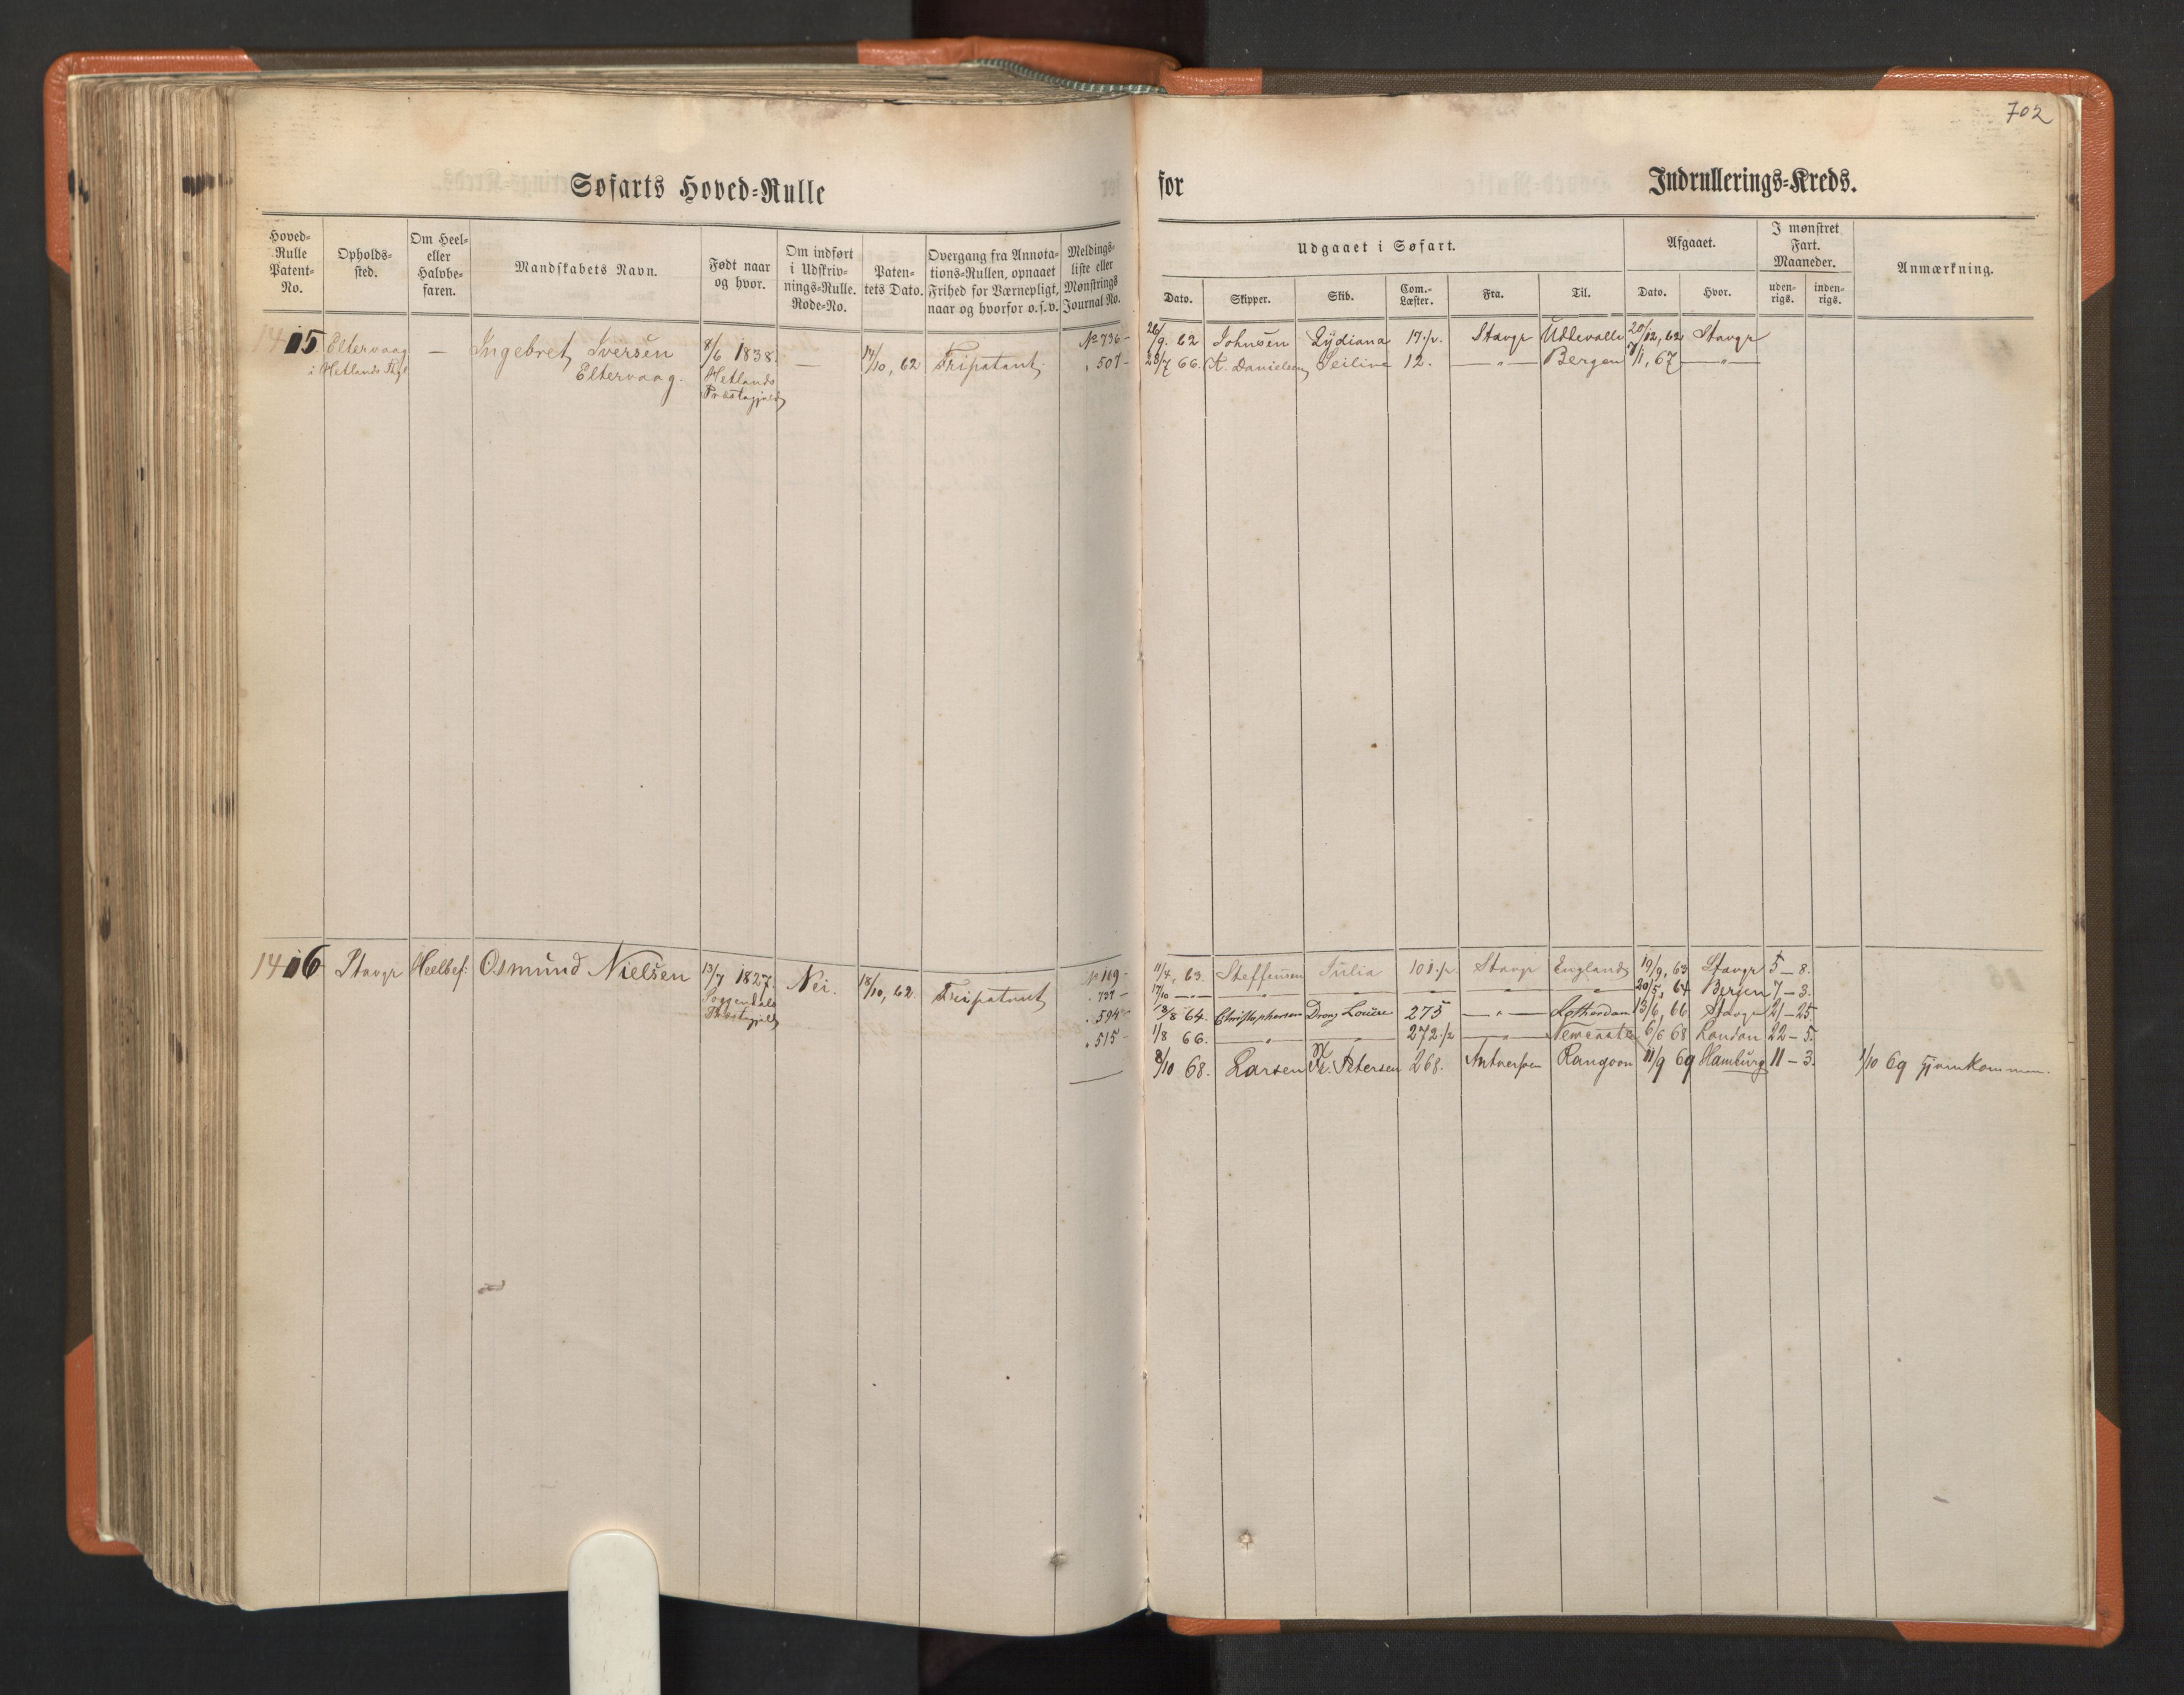 702
Søfarts Hoved-Rulle
for Indrullerings-Kreds.
Hoved-Rulle Patent-No. Opholds-sted. Om Heel- eller Halvbefaren. Mandskabets Navn. Født naar og hvor. Om indført i Udskrivnings-Rulle. Rode-No. Patentets Dato. Overgang fra Annotations-Rullen, opnaaet Frihed for Værnepligt, naar og hvorfor o.s.v. Meldingsliste eller Mønstrings Journal No.
Udgaaet i Søfart. Afgaaet. I mønstret Fart. Maaneder. Anmærkning.
Dato. Skipper. Skib. Com.-Læster. Fra. Til. Dato. Hvor. udenrigs. indenrigs.
1405 Eltervaag — Ingebret Iversen 8/6 1838. — 14/10, 62 Fripatent. No 736 - 26/9. 62 Johnsen Lydiana 17 1/2. Stavgr Uddevalla 20/12, 62 Stavgr
i Hetlands Pgl Eltervaag. Hetlands . 507 - 28/7 66. K. Danielsen Seiline 12. — " — Bergen 7/1, 67 — " —
Præstegjeld
1406 Stavgr Heelbef: Osmund Nielsen 13/7 1827. Nei. 18/10, 62. Fripatent No 169 - 11/4, 63. Steffensen Julia 101 1/2. Stavgr England 19/9, 63 Stavgr 5 - 8.
Soggendals . 737 - 17/10 — " — " " " " " 20/5, 64 Bergen 7 - 3.
Præstegjeld . 594 - 18/8 64. Christophersen Drong Louise 275 — " — Rotterdam 13/6, 66 Stavgr 21 - 25
. 515 - 1/8 66. " " 272 1/2 " Newcastle 6/6 68 London 22 - 5.
8/10 68. Larsen K. Petersen 268. Antwerpen Rangoon 11/9 69 Hamburg 11 - 3. 1/10 69 Hjemkommen.